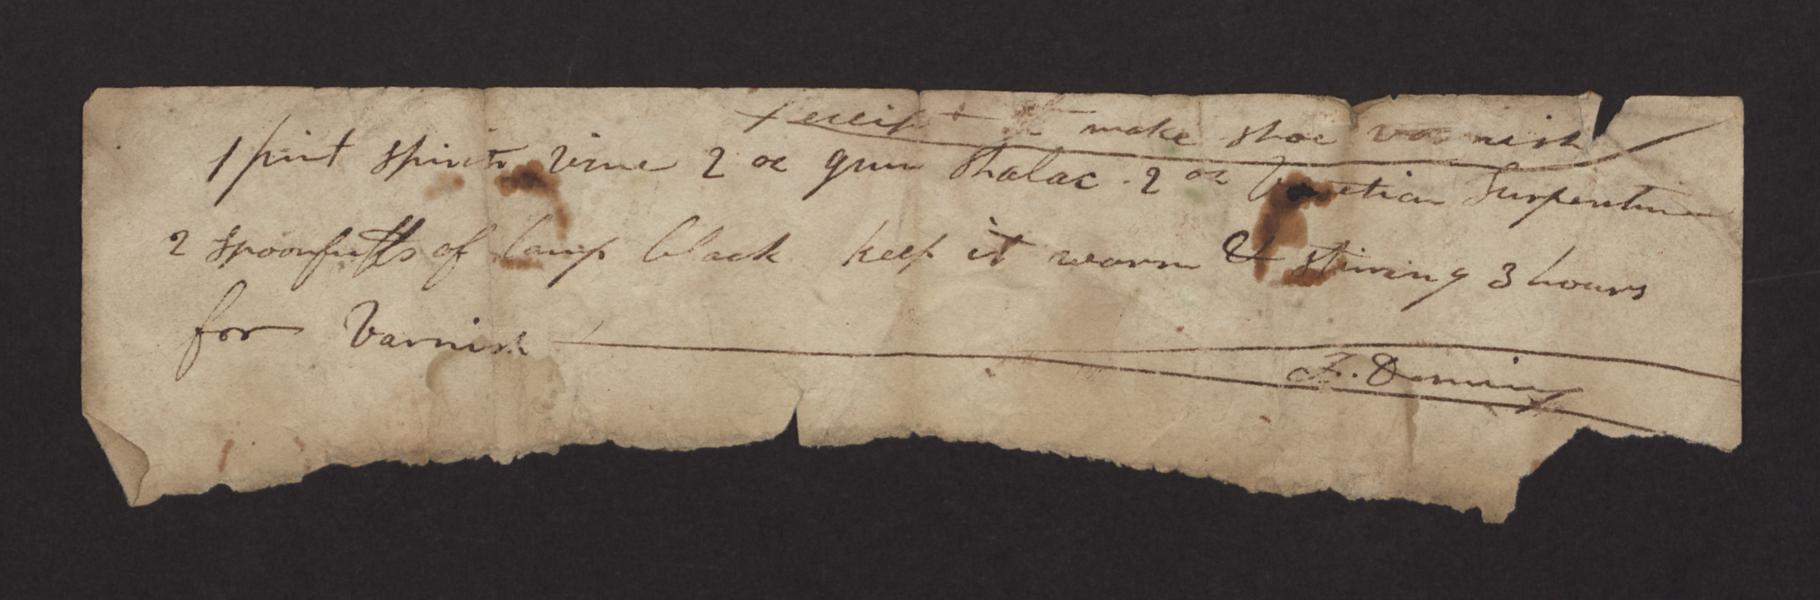 Receipt to make shoe varnish
1 pint spirits vine 2 oz gum Shalac - 2 oz Venetian Turpentine
2 spoonfulls of lamp black keep it warm & stiring 3 hours
for Varnish